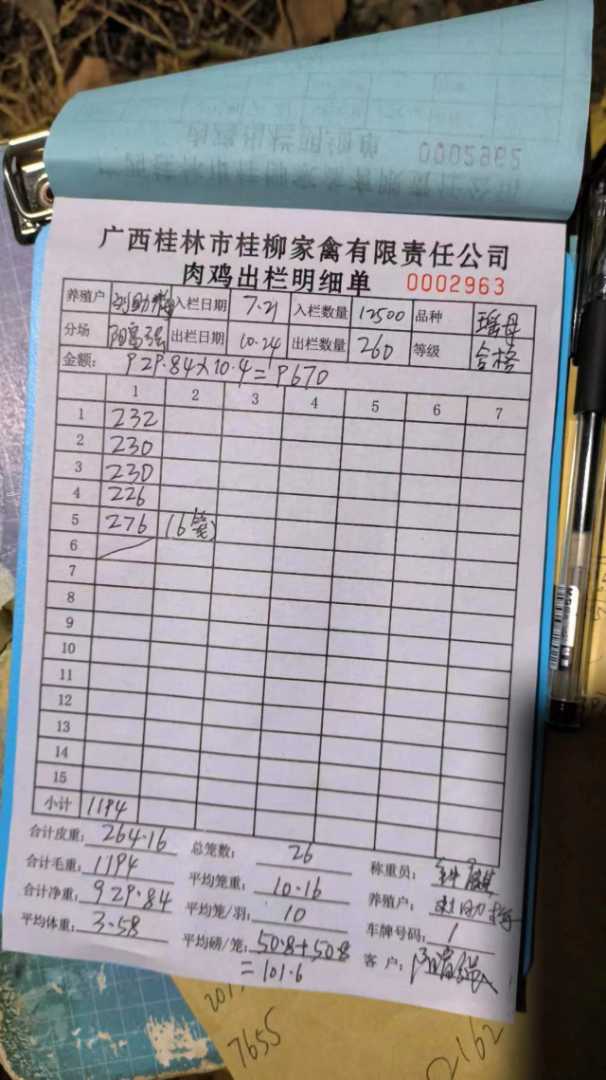 0002962
广西桂林市桂柳家禽有限责任公司
肉鸡出栏明细单 0002963
养殖户 入栏日期 7.21 入栏数量 12500 品种 瑶母
分场 出栏日期 10.24 出栏数量 260 等级 合格
金额: 929.84×10.4=9670
1 2 3 4 5 6 7
1 232
2 230
3 230
4 226
5 276 (6笼)
6
7
8
9
10
11
12
13
14
15
小计 1194
合计皮重: 264.16 总笼数: 26 称重员:
合计毛重: 1194 平均笼重: 10.16 养殖户:
合计净重: 929.84 平均笼/羽: 10 车牌号码: 1
平均体重: 3.58 平均磅/笼: 50.8+50.8 客户:
=101.6
7655
2162